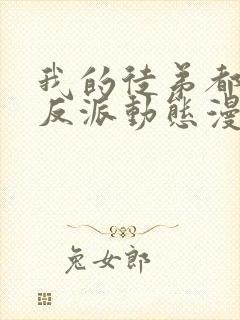 我的徒弟都
反派動態漫
兔女郎